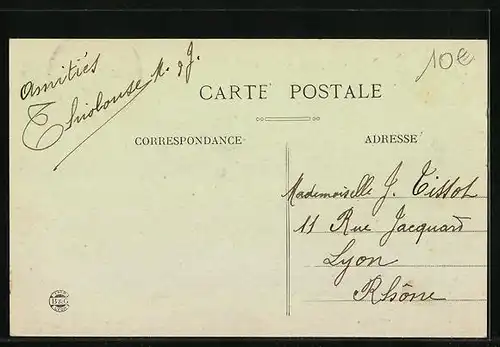 Amitiés
10€
CARTE POSTALE
CORRESPONDANCE
ADRESSE
Mademoiselle J. Tissot
11 Rue Jacquard
Lyon
Rhône